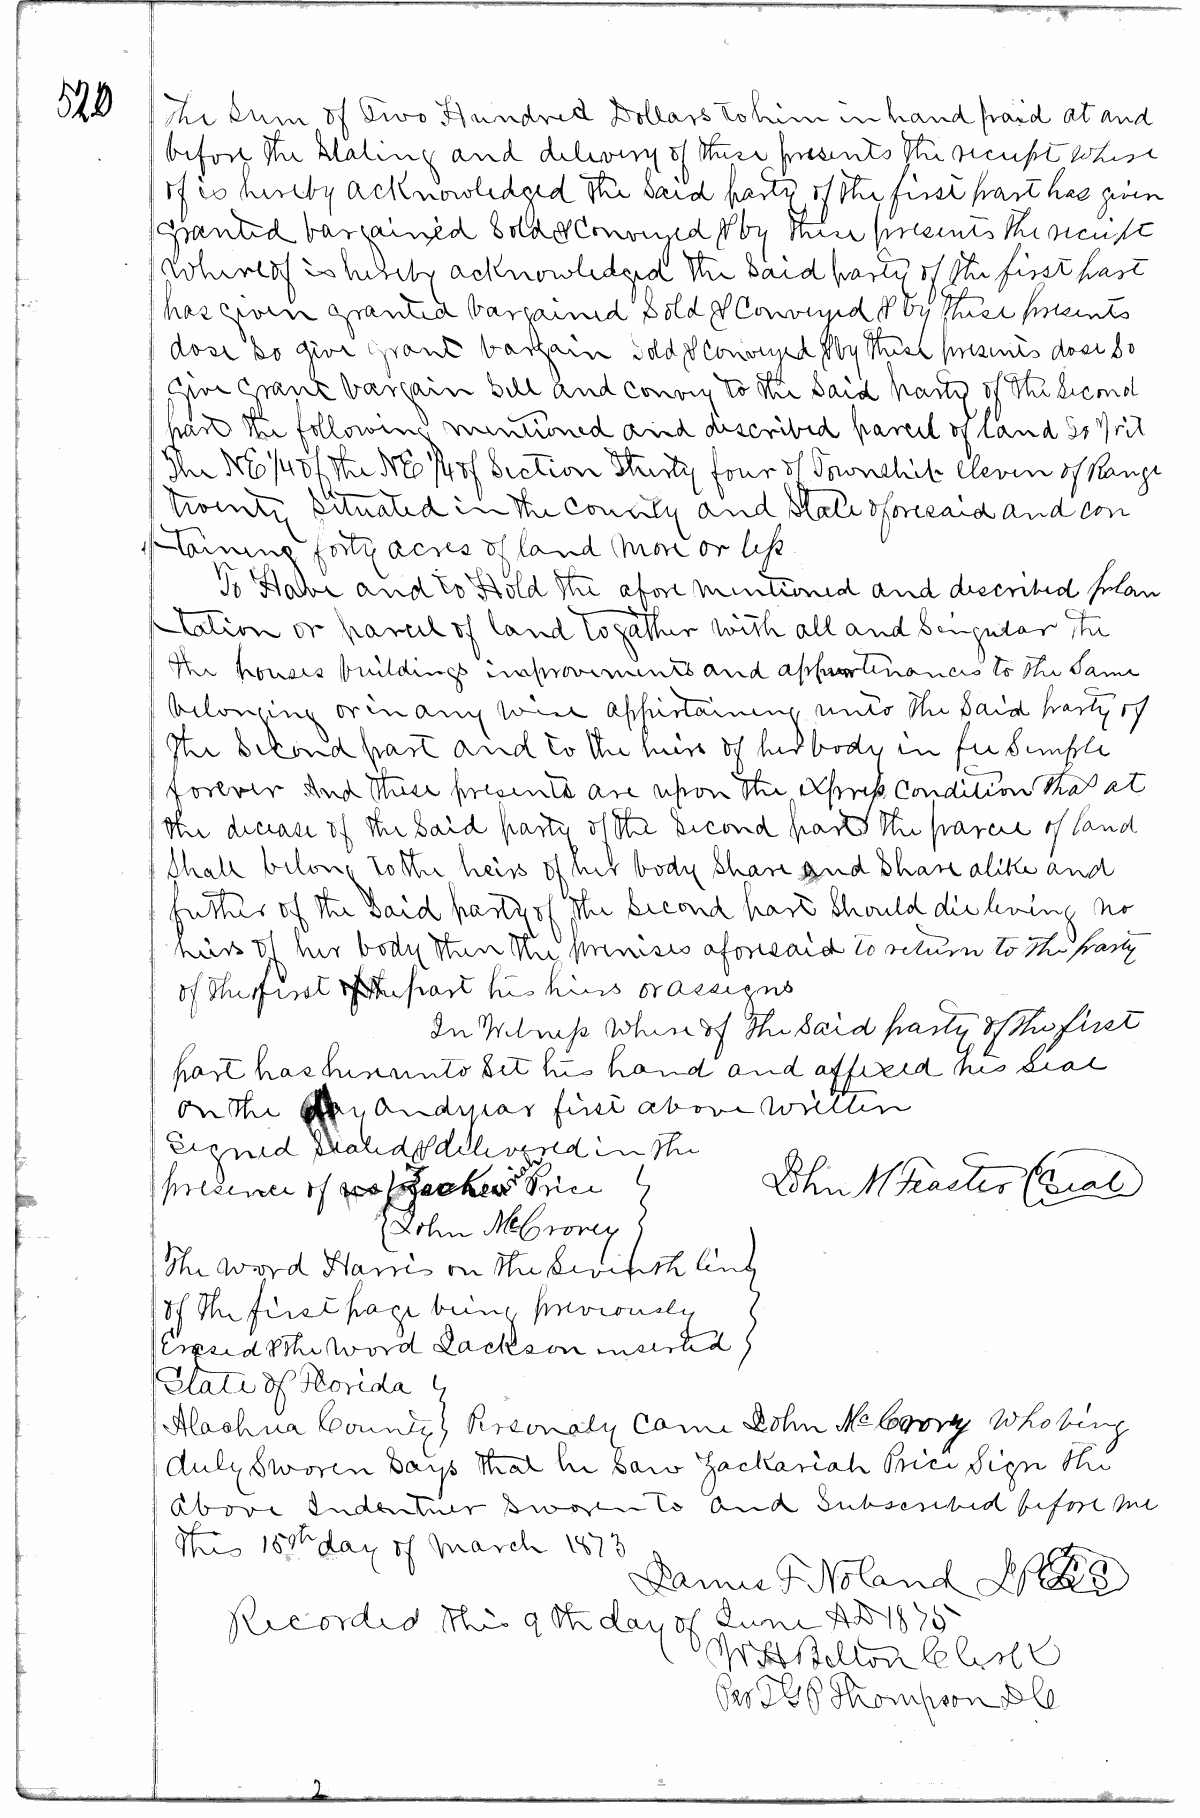 520
The Sum of Two Hundred Dollars to him in hand paid at and
before the Sealing and delivery of these presents the reciept where
of is hereby acknowledged the Said party of the first part has given
granted bargained Sold & Conveyed & by these presents the reciept
whereof is hereby acknowledged the Said party of the first part
has given granted bargained Sold & Conveyed & by these presents
dose So give grant bargain Sold & conveyed & by these presents dose So
give grant bargain Sell and convey to the Said party of the Second
part the following mentioned and described parcel of land To Wit
The NE 1/4 of the NE 1/4 of Section Thirty four of Township Eleven of Range
twenty Situated in the County and State aforesaid and con
taining forty acres of land more or less
To Have and to Hold the afore mentioned and described plan
tation or parcel of land togather with all and Singular the
the houses buildings improvements and appurtenances to the Same
belonging or in any wise appirtaining unto the Said party of
the Second part and to the heirs of her body in fee Simple
forever And these presents are upon the express Condition that at
the decease of the Said party of the Second part the parcel of land
Shall belong to the heirs of her body Share and Share alike and
futher of the Said party of the Second part Should die leving no
heirs of her body then the premises aforesaid to return to the party
of the first of the part his hiers or assigns
In Witness Where of the Said party of the first
part has hereunto Set his hand and affixed his Seal
on the day and year first above written
Signed Sealed & delivered in the
presence of us Zackariah Price
John McCrorey
John M Feaster (Seal)
The word Harris on the Seventh line
of the first page being previously
Erased & the word Jackson inserted
State of Florida
Alachua County Personaly Came John McCrory Who being
duly Sworen Says that he Saw Zackariah Price Sign the
above Indentuer Sworen to and Subscribed before me
this 15th day of March 1873
James F. Noland J P (LS)
Recorded this 9th day of June AD 1875
W H Belton Clerk
Per T G P Thompson DC
2